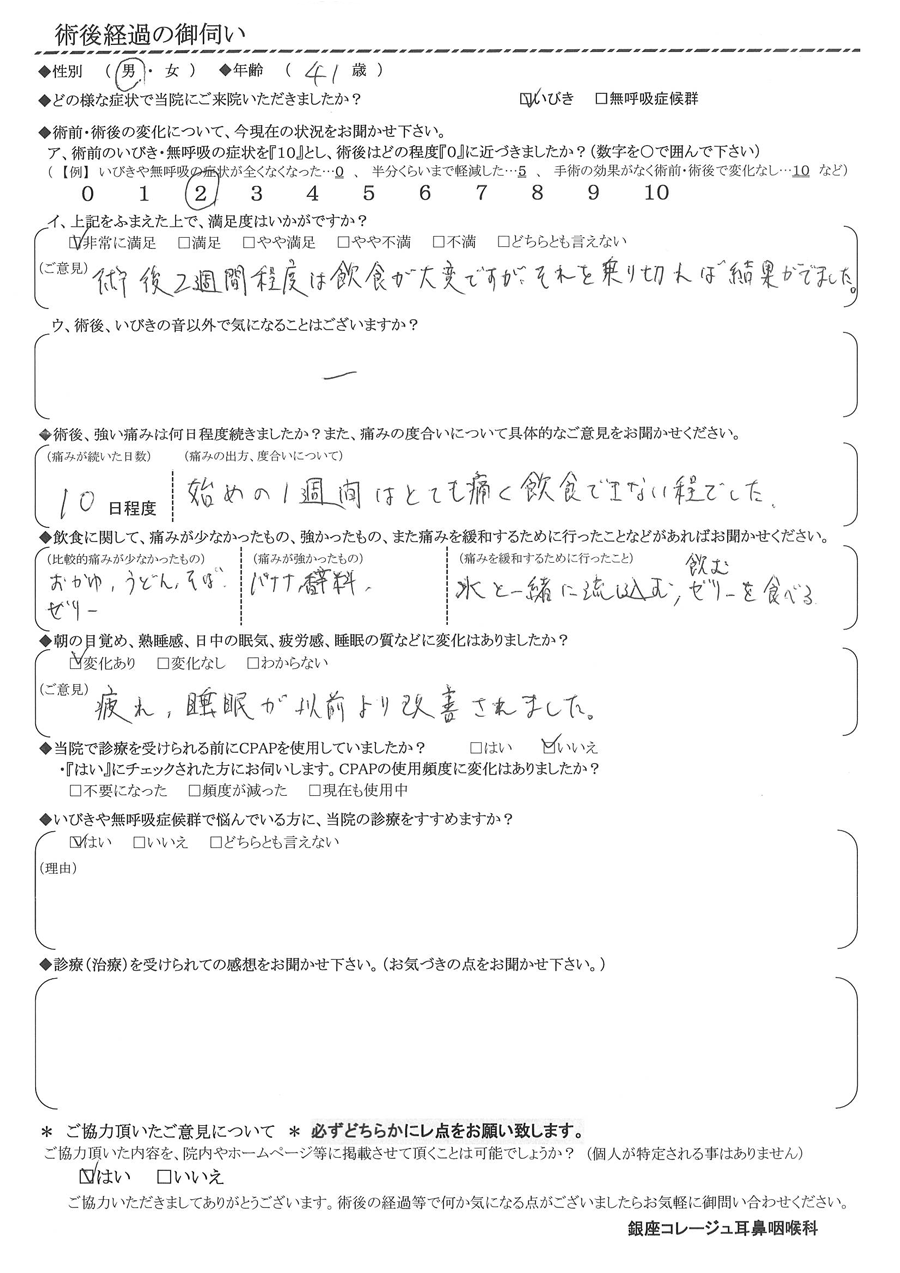 術後経過の御伺い
◆性別 ( 男 ・ 女 ) ◆年齢 ( 41 歳 )
◆どの様な症状で当院にご来院いただきましたか? ☑いびき □無呼吸症候群
◆術前・術後の変化について、今現在の状況をお聞かせ下さい。
ア、術前のいびき・無呼吸の症状を『10』とし、術後はどの程度『0』に近づきましたか?(数字を〇で囲んで下さい)
(【例】 いびきや無呼吸の症状が全くなくなった…0 、 半分くらいまで軽減した…5 、 手術の効果がなく術前・術後で変化なし…10 など)
0 1 2 3 4 5 6 7 8 9 10
イ、上記をふまえた上で、満足度はいかがですか?
☑非常に満足 □満足 □やや満足 □やや不満 □不満 □どちらとも言えない
(ご意見) 術後2週間程度は飲食が大変ですが、それを乗り切れば結果がでました。
ウ、術後、いびきの音以外で気になることはございますか?
ー
◆術後、強い痛みは何日程度続きましたか?また、痛みの度合いについて具体的なご意見をお聞かせください。
(痛みが続いた日数) (痛みの出方、度合いについて)
10 日程度 始めの1週間はとても痛く飲食できない程でした。
◆飲食に関して、痛みが少なかったもの、強かったもの、また痛みを緩和するために行ったことなどがあればお聞かせください。
(比較的痛みが少なかったもの) (痛みが強かったもの) (痛みを緩和するために行ったこと)
おかゆ、うどん、そば、 バナナ、香辛料、 水と一緒に流し込む、飲むゼリーを食べる
ゼリー
◆朝の目覚め、熟睡感、日中の眠気、疲労感、睡眠の質などに変化はありましたか?
☑変化あり □変化なし □わからない
(ご意見) 疲れ、睡眠が以前より改善されました。
◆当院で診療を受けられる前にCPAPを使用していましたか? □はい ☑いいえ
・『はい』にチェックされた方にお伺いします。CPAPの使用頻度に変化はありましたか?
□不要になった □頻度が減った □現在も使用中
◆いびきや無呼吸症候群で悩んでいる方に、当院の診療をすすめますか?
☑はい □いいえ □どちらとも言えない
(理由)
◆診療(治療)を受けられての感想をお聞かせ下さい。(お気づきの点をお聞かせ下さい。)
＊ ご協力頂いたご意見について ＊ 必ずどちらかにレ点をお願い致します。
ご協力頂いた内容を、院内やホームページ等に掲載させて頂くことは可能でしょうか? (個人が特定される事はありません)
☑はい □いいえ
ご協力いただきましてありがとうございます。術後の経過等で何か気になる点がございましたらお気軽に御問い合わせください。
銀座コレージュ耳鼻咽喉科